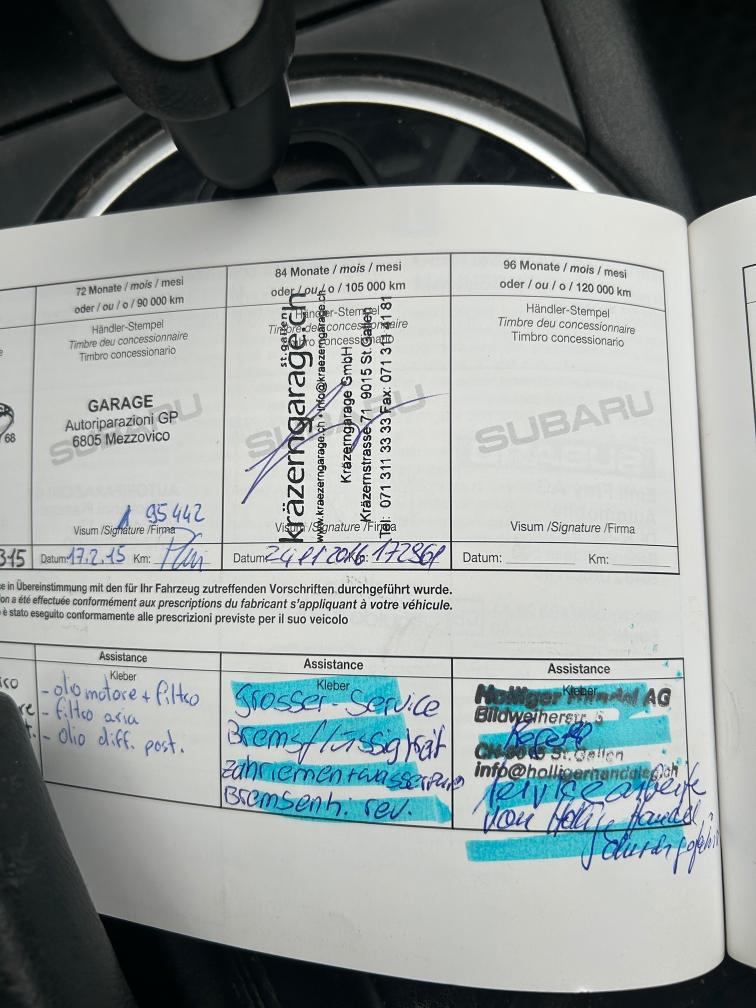 72 Monate / mois / mesi
oder / ou / o / 90 000 km
Händler-Stempel
Timbre deu concessionnaire
Timbro concessionario
SUBARU
GARAGE
Autoriparazioni GP
6805 Mezzovico
68
1 95442
Visum /Signature /Firma
315
Datum: 17.2.15 Km:
84 Monate / mois / mesi
oder / ou / o / 105 000 km
Händler-Stempel
Timbre deu concessionnaire
Timbro concessionario
SUBARU
st.gallen
kräzerngarage.ch
www.kraezerngarage.ch · info@kraezerngarage.ch
Kräzerngarage GmbH
Kräzernstrasse 71 9015 St.Gallen
Tel: 071 311 33 33 Fax: 071 311 41 81
Visum /Signature /Firma
Datum: 24.11.2016 172961
96 Monate / mois / mesi
oder / ou / o / 120 000 km
Händler-Stempel
Timbre deu concessionnaire
Timbro concessionario
SUBARU
Visum /Signature /Firma
Datum: Km:
e in Übereinstimmung mit den für Ihr Fahrzeug zutreffenden Vorschriften durchgeführt wurde.
on a été effectuée conformément aux prescriptions du fabricant s'appliquant à votre véhicule.
è stato eseguito conformamente alle prescrizioni previste per il suo veicolo
Assistance
Kleber
- olio motore + filtro
- filtro aria
- olio diff. post.
Assistance
Kleber
Grosser-Service
Bremsflüssigkeit
Zahnriemen + Wasserpump
Bremsenh. rev.
Assistance
Kleber
Holliger Handel AG
Bildweiherstr.
St. Gallen
info@holligerhandelag.ch
Servicearbeite
von Holliger Handel
durchgeführ